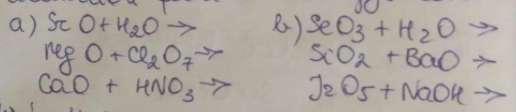 a) SrO + H2O →
MgO + Cl2O7 →
CaO + HNO3 →
b) SeO3 + H2O →
SiO2 + BaO →
I2O5 + NaOH →